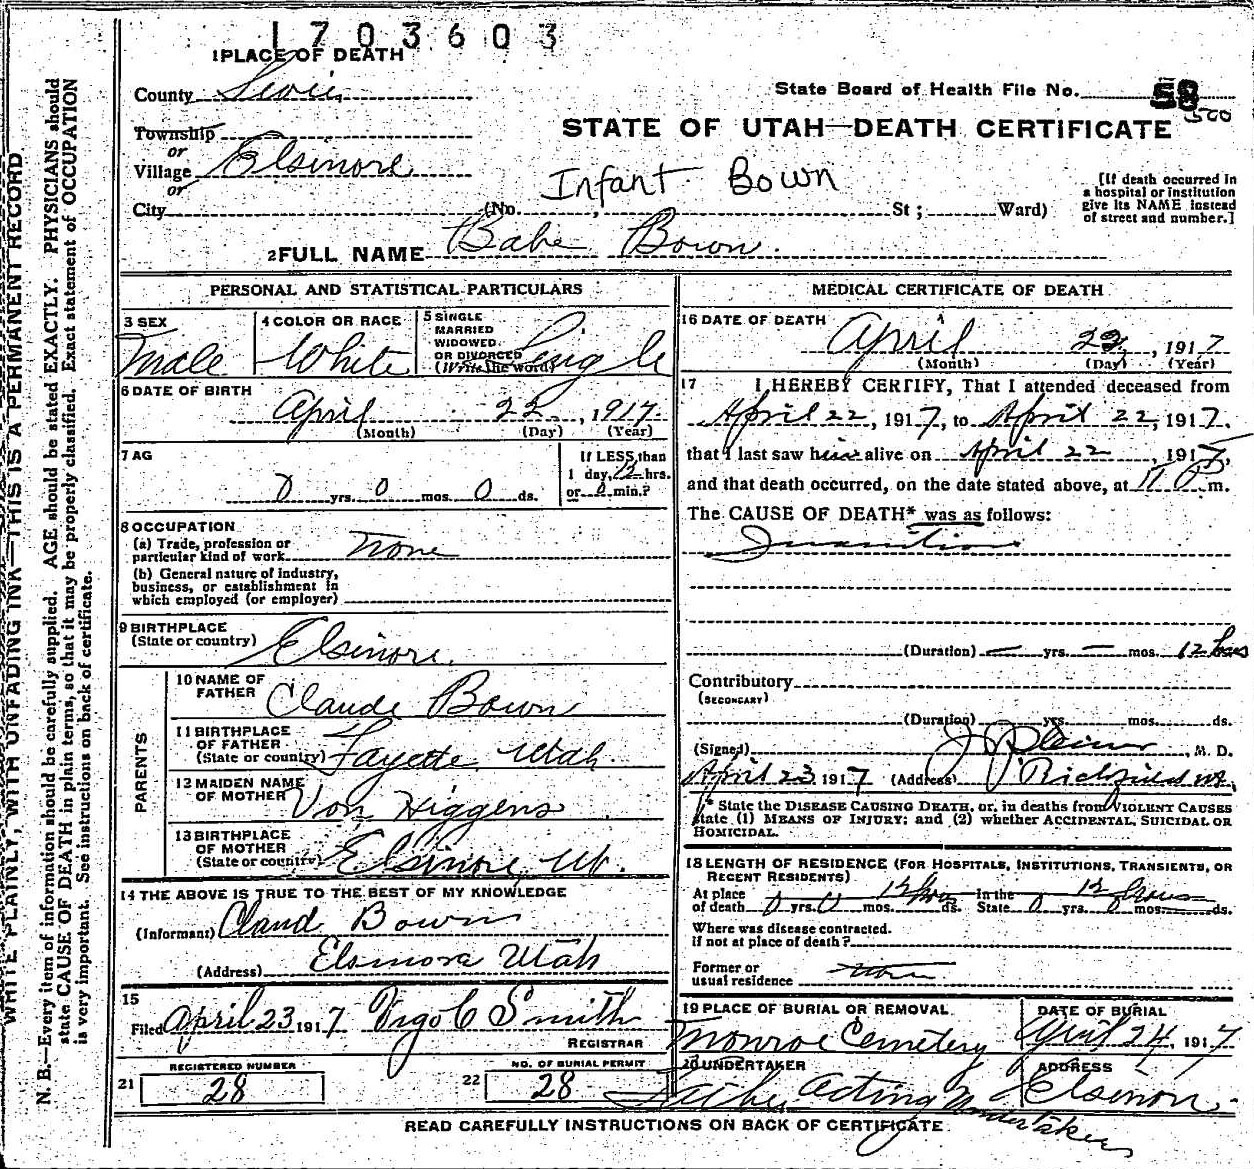 1703603
1 PLACE OF DEATH
County Sevier
State Board of Health File No. 58
500
STATE OF UTAH—DEATH CERTIFICATE
Township
or
Village Elsinore
or
Infant Bown
[If death occurred in
a hospital or institution
give its NAME instead
of street and number.]
City (No. , St ; Ward)
2 FULL NAME Babe Bown.
PERSONAL AND STATISTICAL PARTICULARS
3 SEX Male
4 COLOR OR RACE White
5 SINGLE
MARRIED
WIDOWED
OR DIVORCED
(Write the word) Single
6 DATE OF BIRTH
April 22, 1917.
(Month) (Day) (Year)
7 AG
0 yrs. 0 mos. 0 ds.
If LESS than
1 day, 12 hrs.
or 0 min.?
8 OCCUPATION
(a) Trade, profession or
particular kind of work None
(b) General nature of industry,
business, or establishment in
which employed (or employer)
9 BIRTHPLACE
(State or country) Elsinore.
PARENTS
10 NAME OF
FATHER Claude Bown
11 BIRTHPLACE
OF FATHER
(State or country) Fayette Utah.
12 MAIDEN NAME
OF MOTHER Von Higgens
13 BIRTHPLACE
OF MOTHER
(State or country) Elsinore, Ut.
14 THE ABOVE IS TRUE TO THE BEST OF MY KNOWLEDGE
(Informant) Claud Bown
(Address) Elsinora Utah
15
Filed April 23 1917 Vigo C Smith
REGISTRAR
21 REGISTERED NUMBER
28
22 NO. OF BURIAL PERMIT
28
MEDICAL CERTIFICATE OF DEATH
16 DATE OF DEATH
April 22, 1917
(Month) (Day) (Year)
17 I HEREBY CERTIFY, That I attended deceased from
April 22, 1917, to April 22, 1917.
that I last saw him alive on April 22, 1917,
and that death occurred, on the date stated above, at m.
The CAUSE OF DEATH* was as follows:
Inanition
(Duration) — yrs. — mos. 12 hours
Contributory
(SECONDARY)
(Duration) yrs. mos. ds.
(Signed) , M. D.
April 23, 1917 (Address) Richfield Ut.
* State the DISEASE CAUSING DEATH, or, in deaths from VIOLENT CAUSES
state (1) MEANS OF INJURY; and (2) whether ACCIDENTAL, SUICIDAL OR
HOMICIDAL.
18 LENGTH OF RESIDENCE (FOR HOSPITALS, INSTITUTIONS, TRANSIENTS, OR
RECENT RESIDENTS)
At place
of death 0 yrs. 0 mos. 12 hours ds. In the
State 0 yrs. 0 mos. 12 hours ds.
Where was disease contracted.
if not at place of death?
Former or
usual residence
19 PLACE OF BURIAL OR REMOVAL
Monroe Cemetery
DATE OF BURIAL
April 24, 1917
20 UNDERTAKER
Father Acting Undertaker
ADDRESS
Elsinore.
READ CAREFULLY INSTRUCTIONS ON BACK OF CERTIFICATE
WRITE PLAINLY, WITH UNFADING INK—THIS IS A PERMANENT RECORD
N. B.—Every item of information should be carefully supplied. AGE should be stated EXACTLY. PHYSICIANS should
state CAUSE OF DEATH in plain terms, so that it may be properly classified. Exact statement of OCCUPATION
is very important. See instructions on back of certificate.